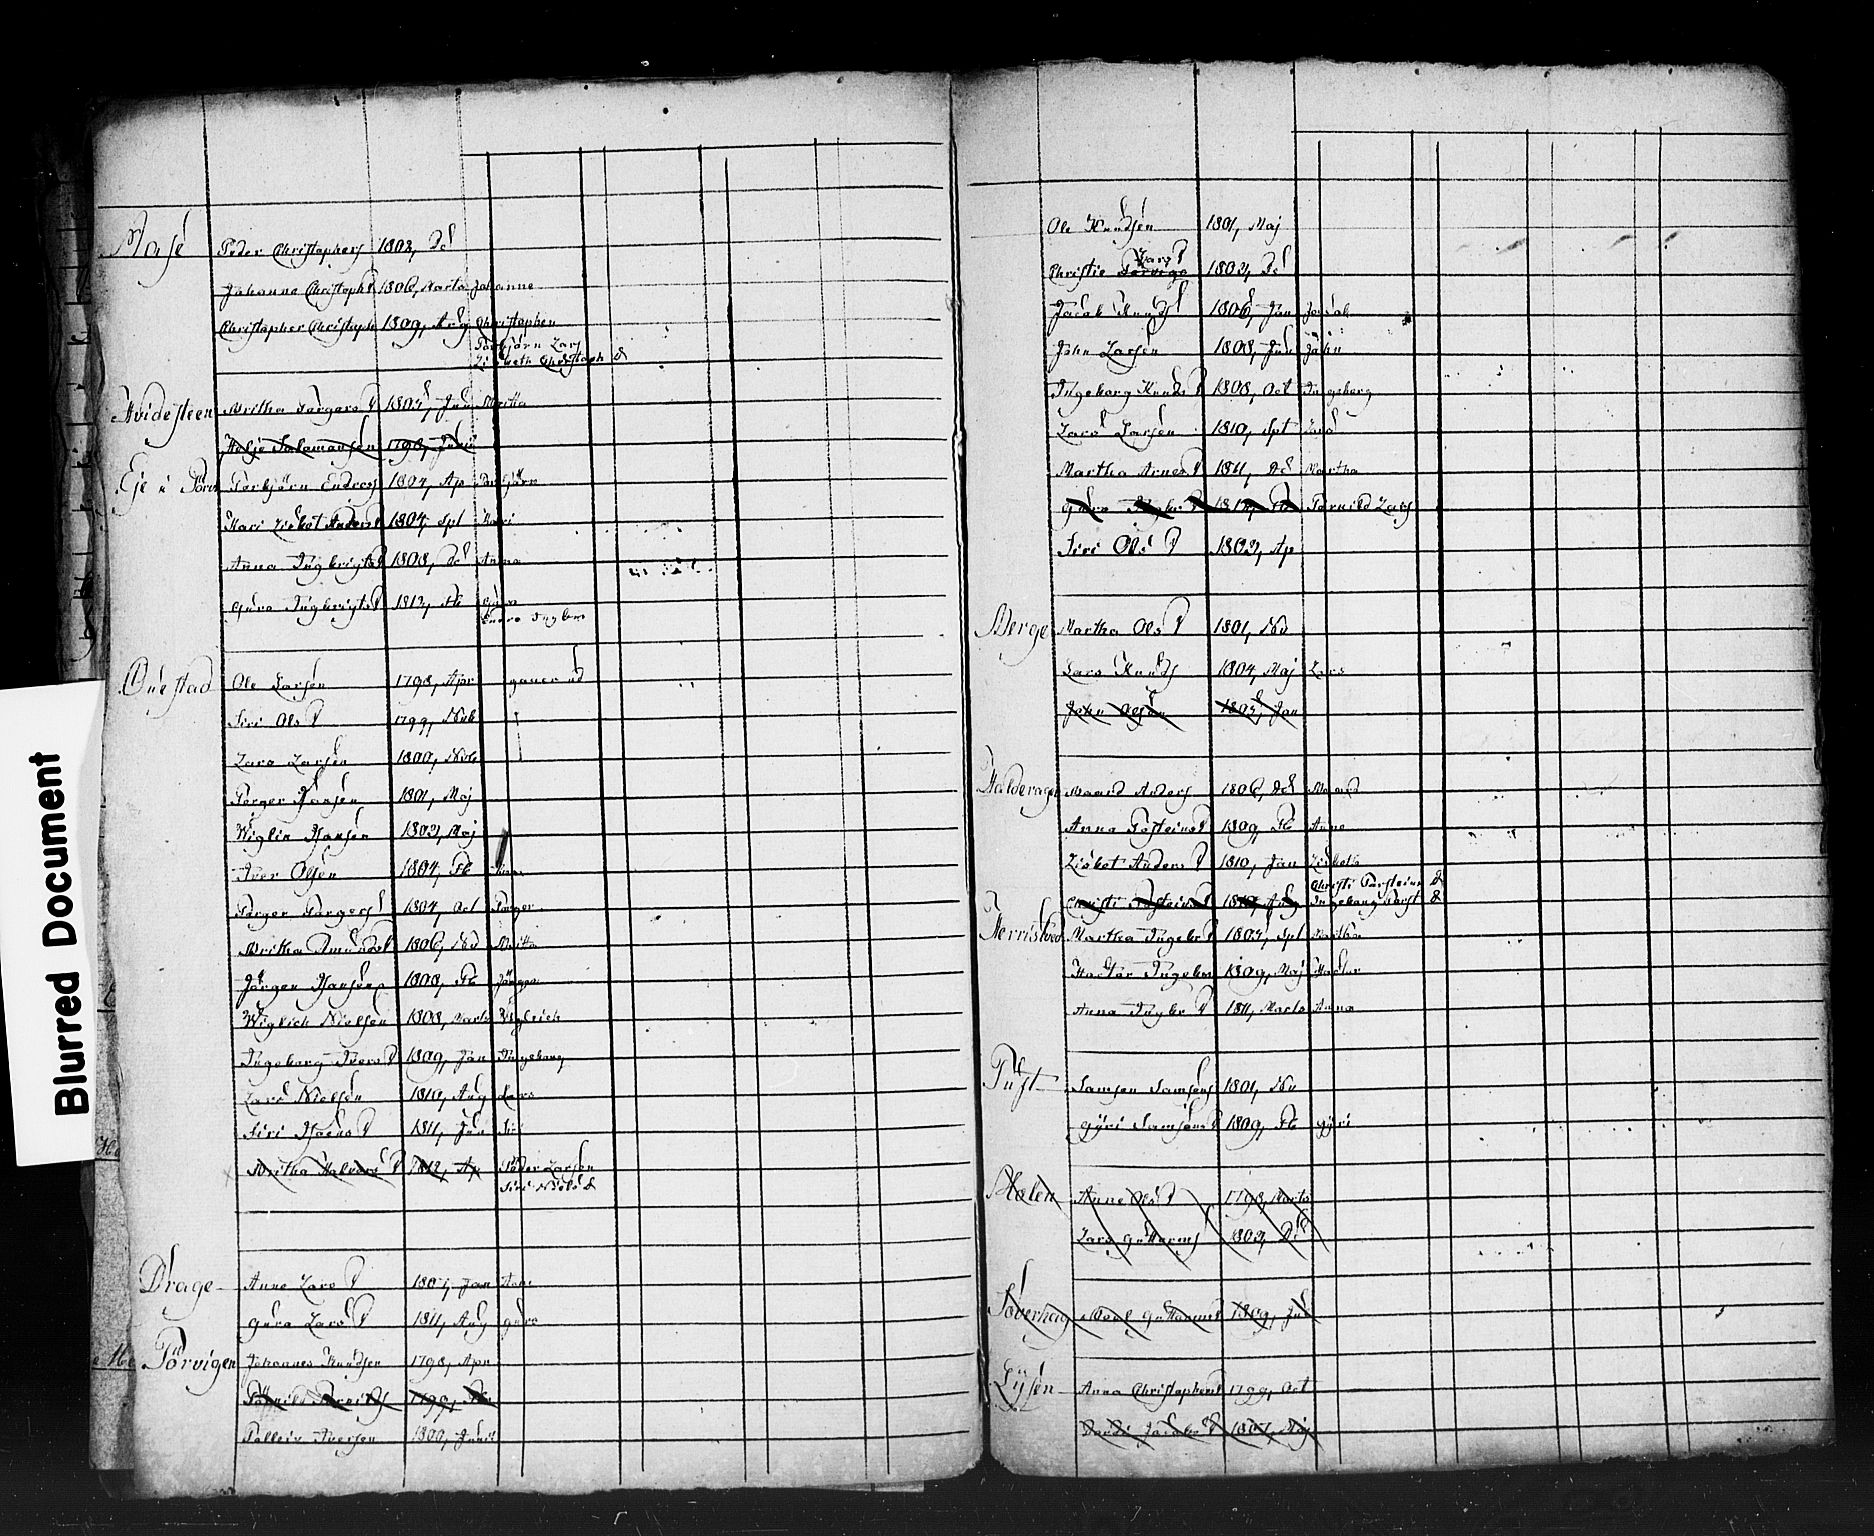 Peder Christophers 1802, Dc
Johanne Christophd 1806, Marts Johanne
Christopher Christophs 1809, Aug Christopher
Torbjörn Lars
Lisbeth Christoph d
Hvidesteen Britha Torgers D 1805, Jul Britha
Helje Salamonsen 1798, Julii
Torbjörn Endres 1804, Ap Torbjörn
Kari Lisbet Anders 1804, Spt Kari
Anna Ingbrigts D 1808, Dc Anna
Guro Ingbrigts D 1812, Fb Guro
Ouestad Ole Larsen 1798, Apr
Siri Ols D 1799, Novb
Lars Larsen 1800, Novb
Torger Hansen 1801, Maj
Wiglix Hansen 1802, Maj
Iver Olsen 1804, Fb
Torger Torgers 1804, Oct Torger
Britha Amunds D 1806, Nov Britha
Jörgen Hansen 1808, Fb Jörgen
Wiglich Nielsen 1808, Marts Wiglich
Ingeborg Ivers D 1809, Jan Ingeborg
Lars Nielsen 1810, Aug Lars
Siri Hans D 1811, Jun Siri
Britha Halvors D 1812, Ap Peder Larsen
Siri Niels d
Drage Anne Lars D 1807, Jan Anne
Guro Lars D 1811, Aug Guro
Törvigen Johannes Knudsen 1798, Apr
1799, Fb
Tolleiv Iversen 1800, Junii
Ole Knudsen 1801, Maj
Lars D
Christie 1802, Dc
Jacob Knuds 1806, Jan Jacob
John Larsen 1808, Jun John
Ingeborg Knuds D 1808, Oct Ingeborg
Lars Larsen 1810, Spt Lars
Martha Arnes D 1811, Dc Martha
Guro Ingbr D 1812, Fb Tornild Lars
Siri Ols D 1802, Ap
Berge Martha Ols D 1801, Nov
Lars Knuds 1804, Maj Lars
John Olsen 1805, Jan
Anders 1806, Dc
Anna Tosteins D 1809, Fb Anne
Lisbet Anders D 1810, Jan Lisbeth
Christi Torsteins d
Christi Tosteins D 1812, Aug Ingeborg Torst d
Martha Ingebr D 1805, Spt Martha
Ingebr 1809, Maj
Anna Ingbr D 1811, Marts Anna
Tuft Samson Samsons 1801, Nov
Gyri Samsons D 1809, Fb Gyri
Holen Anne Ols D 1798, Marts
Lars Guttorms 1802, Dc
Guttorms D 1809, Jul
Lysen Anna Christophers D 1799, Oct
Jacobs D 1807, Maj
Blurred Document